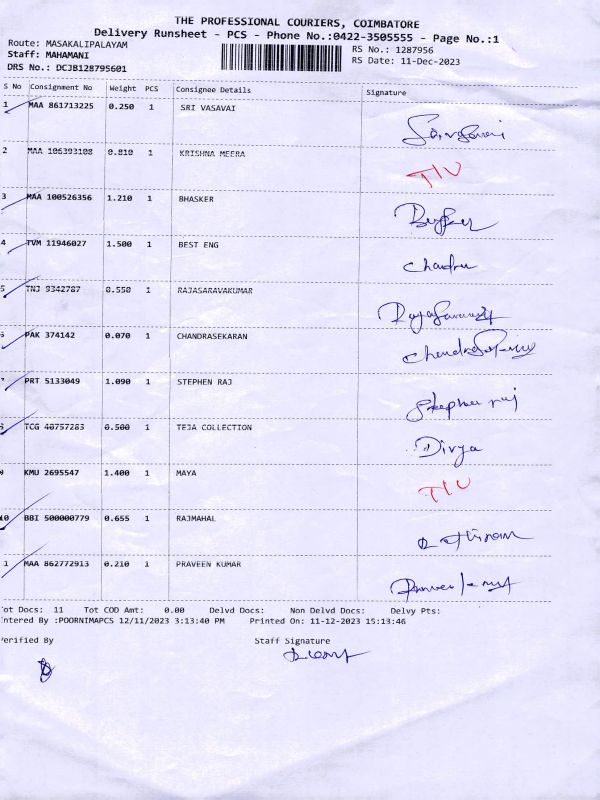 THE PROFESSIONAL COURIERS, COIMBATORE
Delivery Runsheet - PCS - Phone No.:0422-3505555 - Page No.:1
Route: MASAKALIPALAYAM
RS No.: 1287956
Staff: MAHAMANI
RS Date: 11-Dec-2023
DRS No.: DCJB128795601
S No Consignment No Weight PCS Consignee Details Signature
1 MAA 861713225 0.250 1 SRI VASAVAI
2 MAA 106393108 0.810 1 KRISHNA MEERA T/U
3 MAA 100526356 1.210 1 BHASKER
4 TVM 11946027 1.500 1 BEST ENG Chandru
5 TNJ 9342787 0.550 1 RAJASARAVAKUMAR
6 PAK 374142 0.070 1 CHANDRASEKARAN
7 PRT 5133049 1.090 1 STEPHEN RAJ Stephen raj
8 TCG 40757283 0.500 1 TEJA COLLECTION Divya
9 KMU 2695547 1.400 1 MAYA T/U
10 BBI 500000779 0.655 1 RAJMAHAL
1 MAA 862772913 0.210 1 PRAVEEN KUMAR
ot Docs: 11 Tot COD Amt: 0.00 Delvd Docs: Non Delvd Docs: Delvy Pts:
ntered By :POORNIMAPCS 12/11/2023 3:13:40 PM Printed On: 11-12-2023 15:13:46
erified By Staff Signature